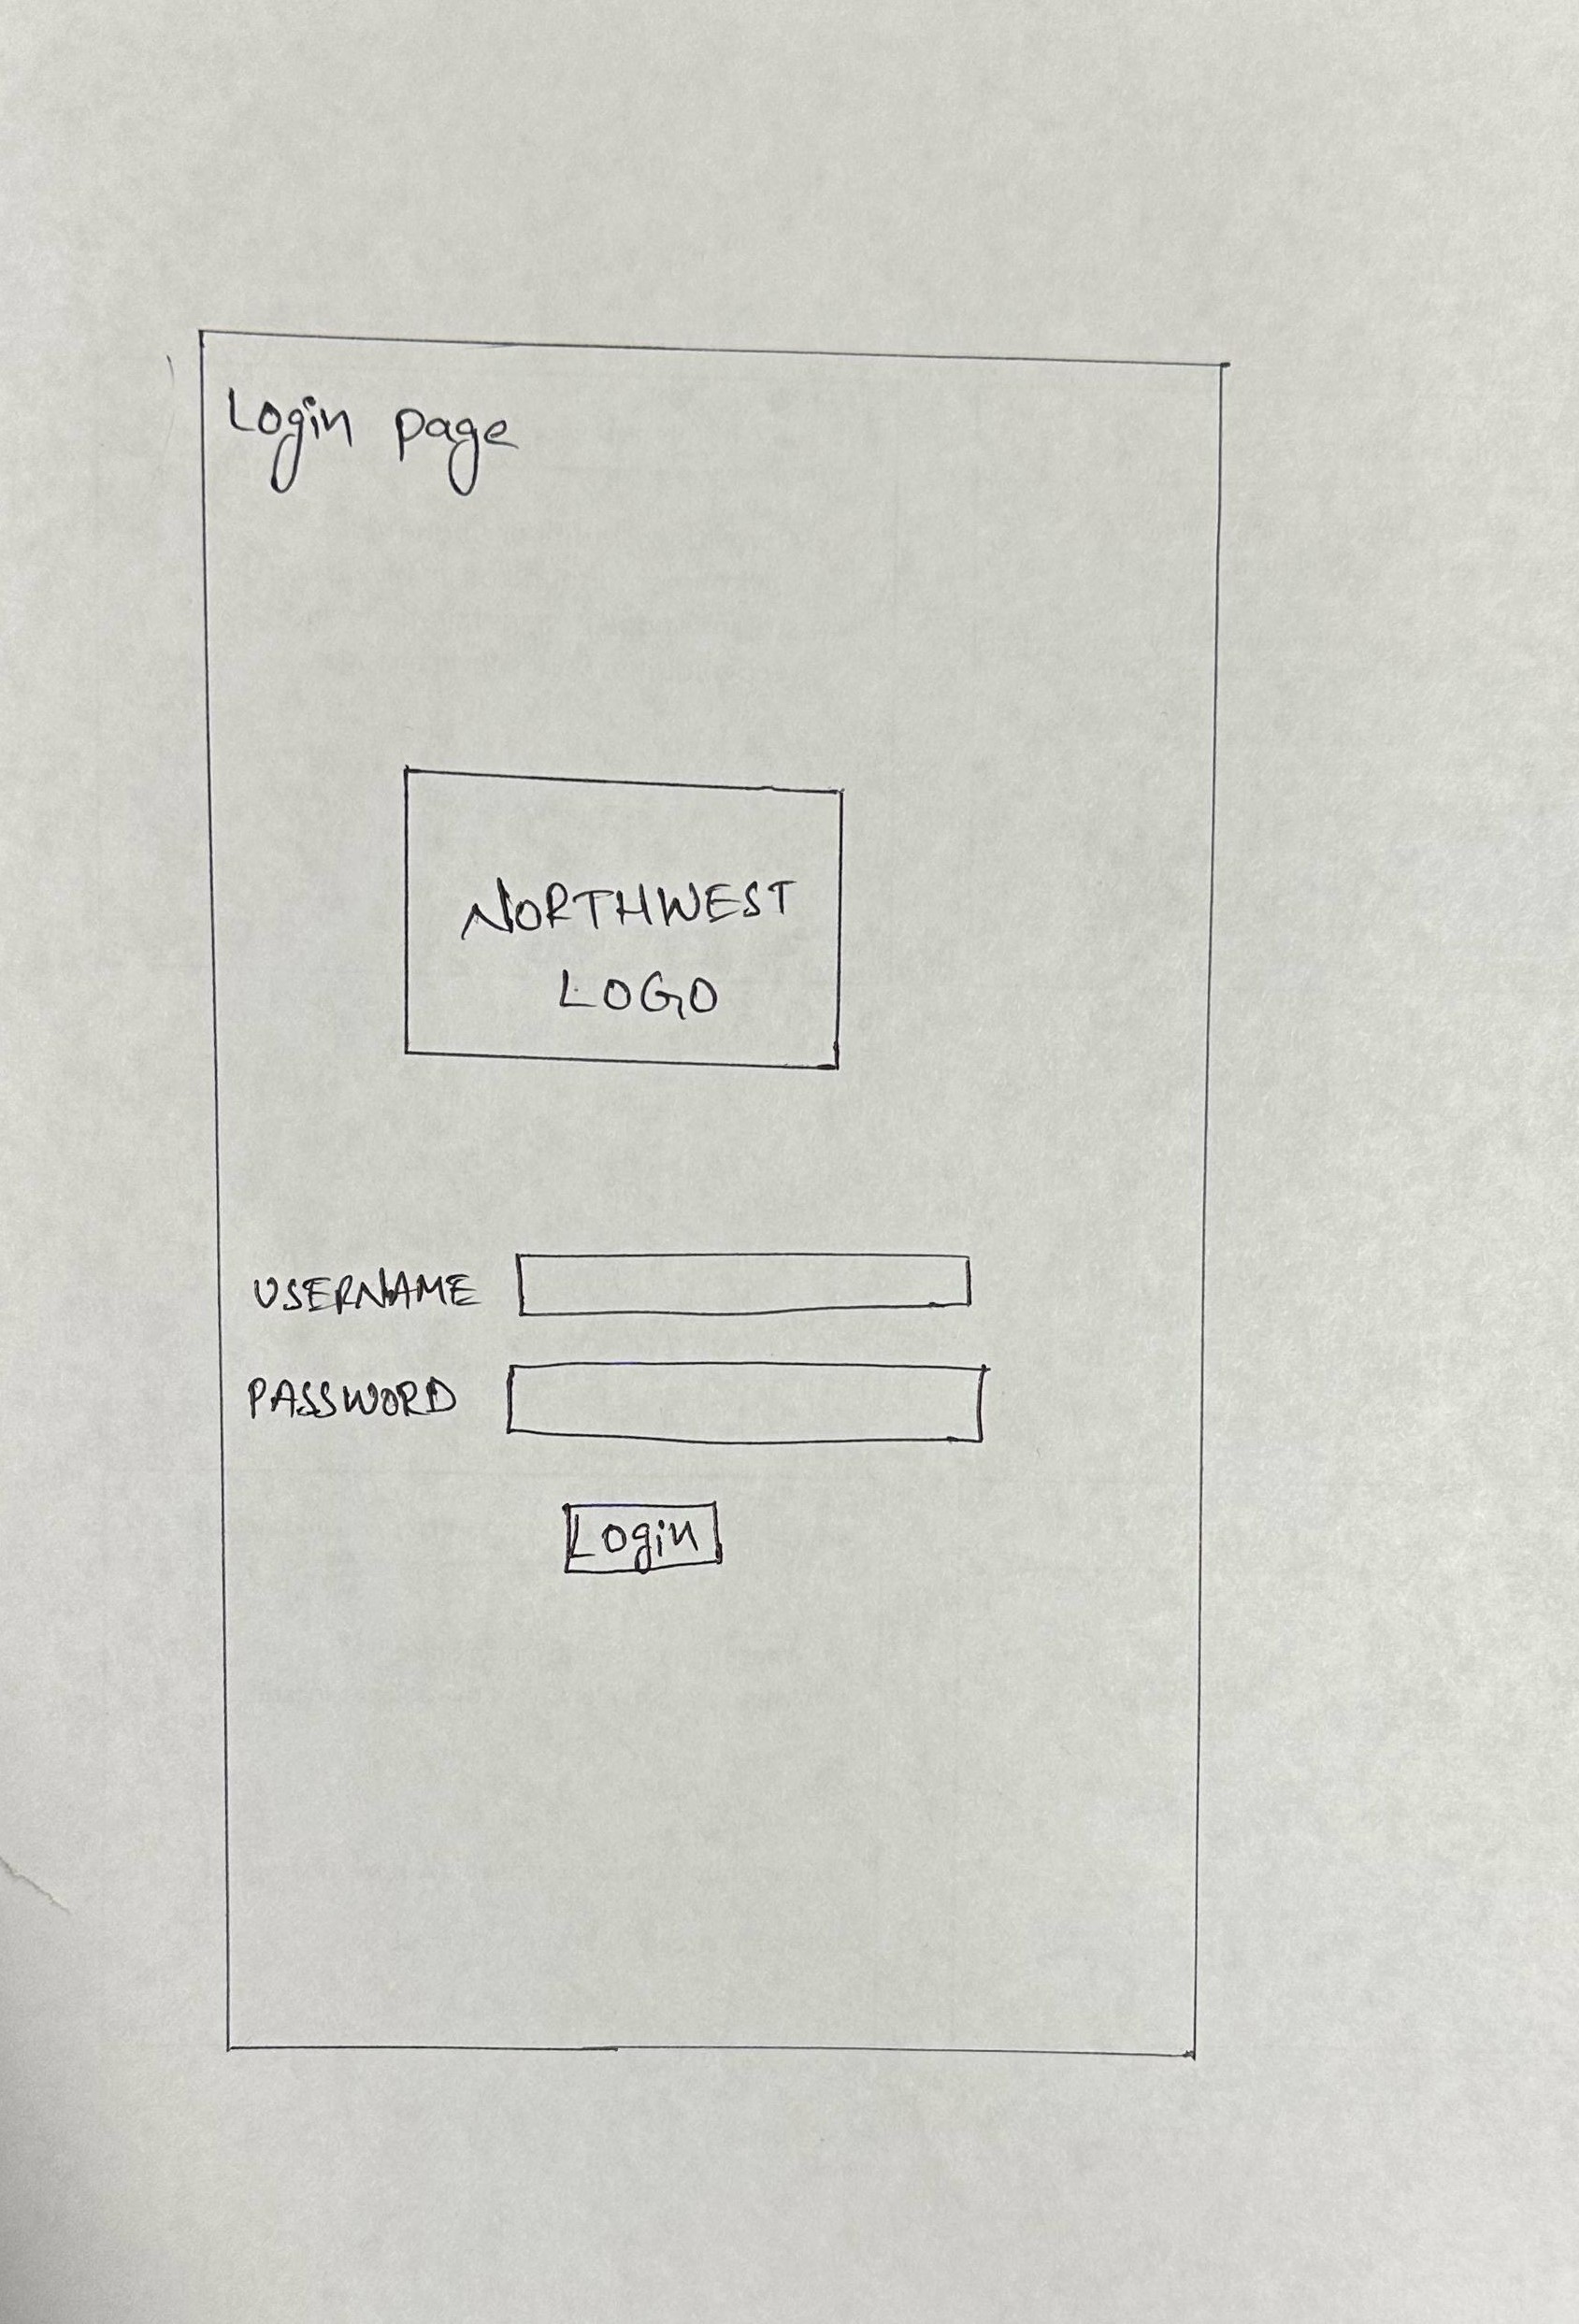 Login page
NORTHWEST
LOGO
USERNAME
PASSWORD
Login